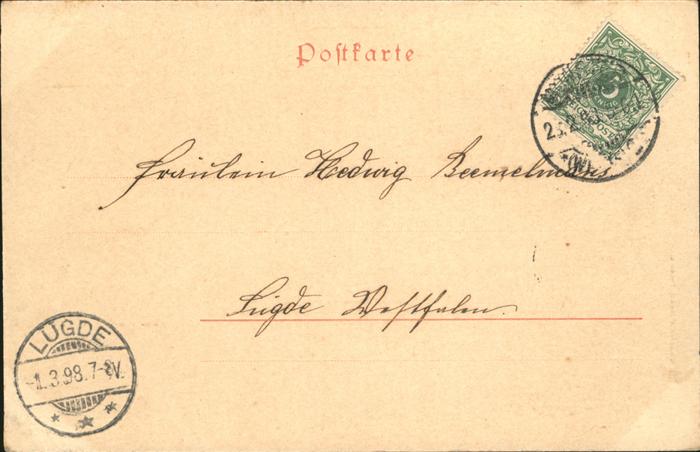 Postkarte
Fräulein Hedwig Beemelmans
Lügde Westfalen.
LÜGDE
-1.3.98.7-8V.